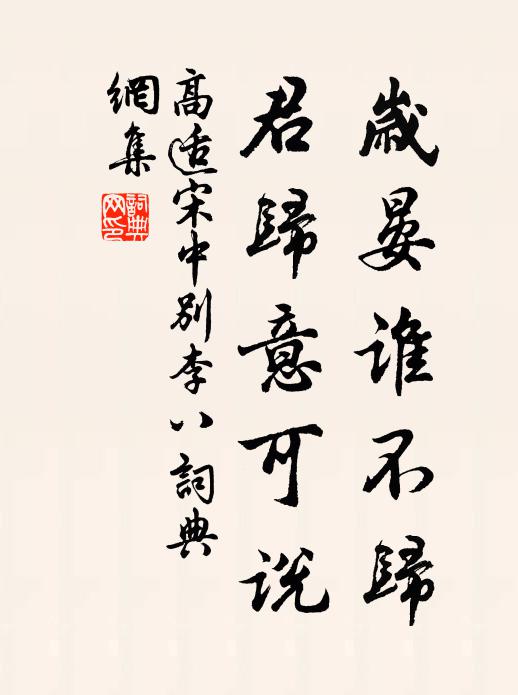 歲晏誰不歸
君歸意可説
高适宋中別李八詞典
網集
詞典
网印